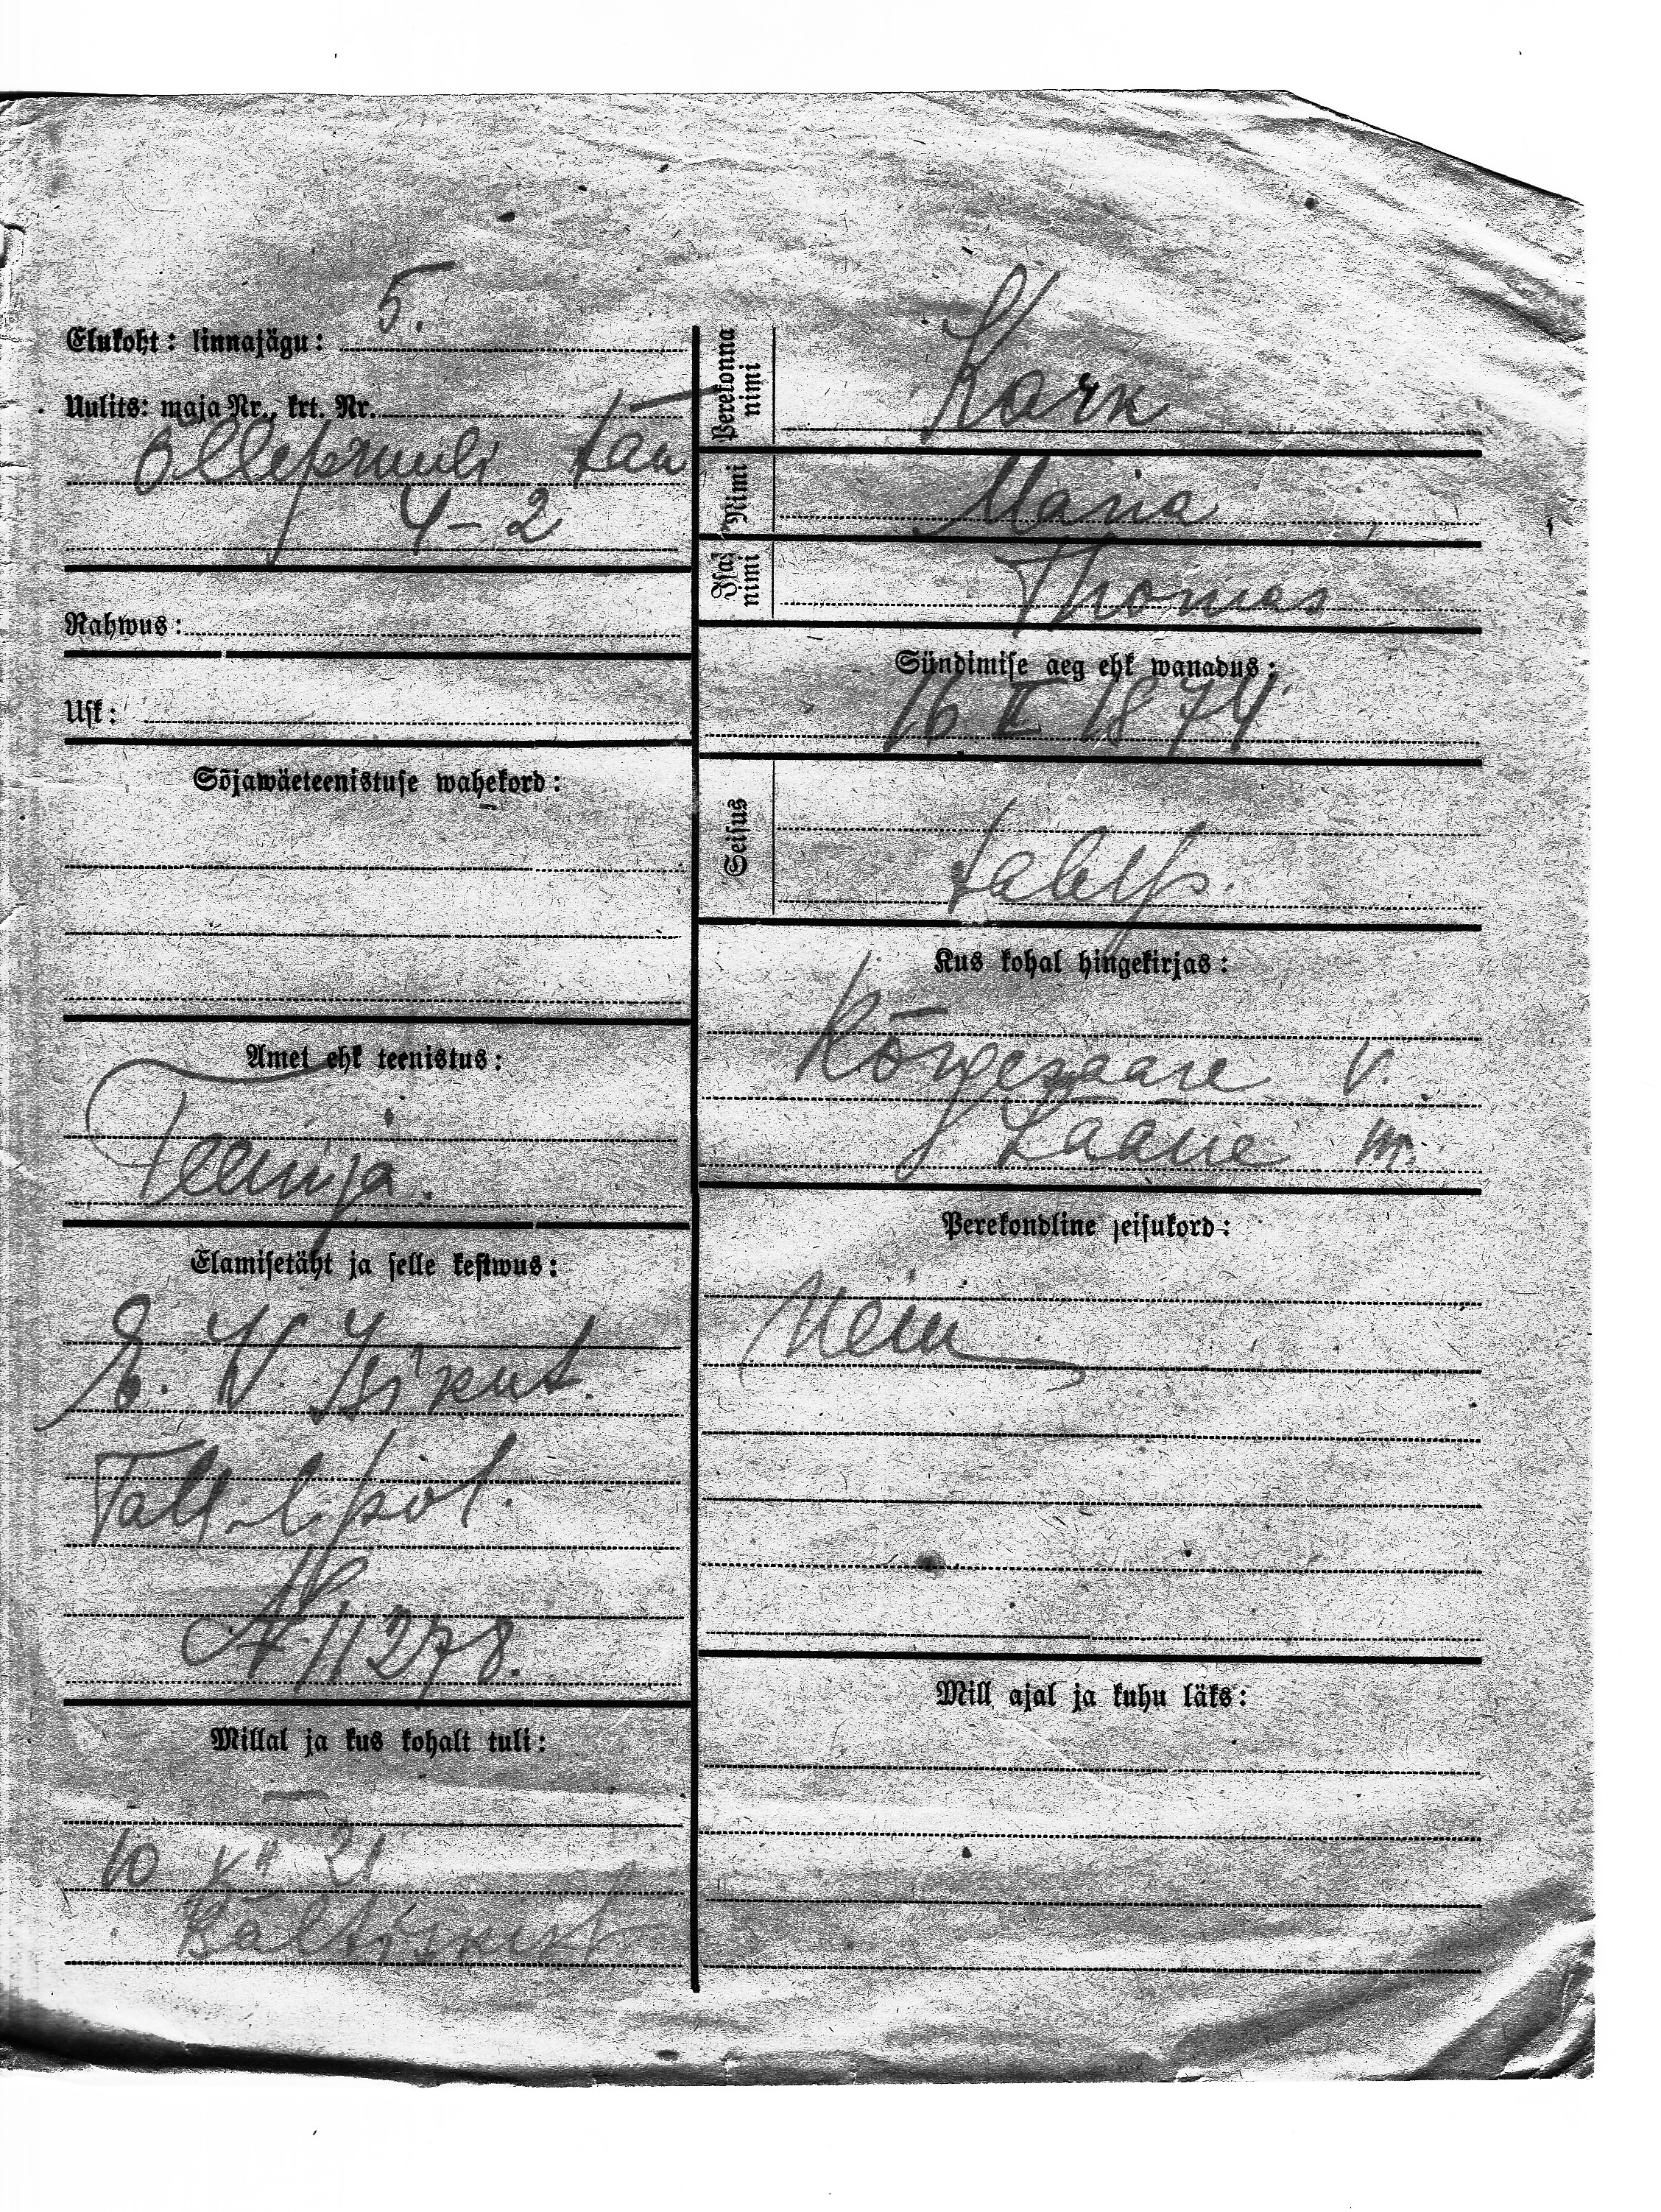 Elukoht: linnajägu: 5.
Uulits: maja Nr., krt. Nr.
Õllepruuli tän
4-2
Rahwus:
Usk:
Sõjawäeteenistuse wahekord:
Amet ehk teenistus:
Teenija.
Elamisetäht ja selle kestwus:
E. W. Isikut.
Tall. l. pol.
№ 11278.
Millal ja kus kohalt tuli:
10 XII 21
Baltiskist
Perekonna nimi
Kark
Nimi
Maria
Isa nimi
Thomas
Sündimise aeg ehk wanadus:
16 II 1874
Seisus
talup.
Kus kohal hingekirjas:
Kõrgesaare v.
Lääne m.
Perekondline seisukord:
Neiu
Mill ajal ja kuhu läks: